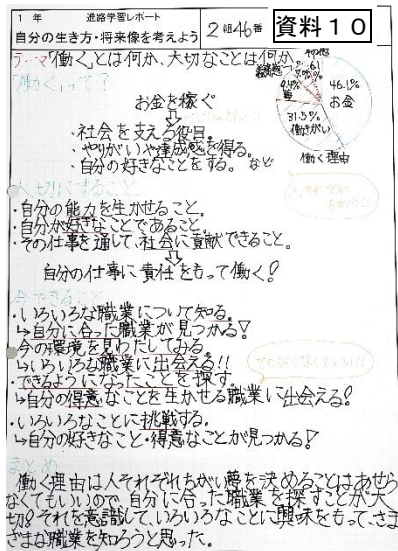 1 年　進路学習レポート
自分の生き方・将来像を考えよう
2組46番
資料10
テーマ「働く」とは何か、大切なことは何か
「働く」って？
その他
46.1%
お金
31.5%
働きがい
働く理由
お金を稼ぐ
・社会を支える役目。
・やりがいや達成感を得る。
・自分の好きなことをする。 など
大切にすること
・自分の能力を生かせること。
・自分が好きなことであること。
・その仕事を通して、社会に貢献できること。
自分の仕事に責任をもって働く!
今できること
・いろいろな職業について知る。
↳自分に合った職業が見つかる!
・今の環境を見わたしてみる。
↳いろいろな職業に出会える!!
・できるようになったことを探す。
↳自分の得意なことを生かせる職業に出会える!
・いろいろなことに挑戦する。
↳自分の好きなこと・得意なことが見つかる!
まとめ
働く理由は人それぞれちがい夢を決めることはあせら
なくてもいいので、自分に合った職業を探すことが大
切! それを意識して、いろいろなことに興味をもって、さま
ざまな職業を知ろうと思った。